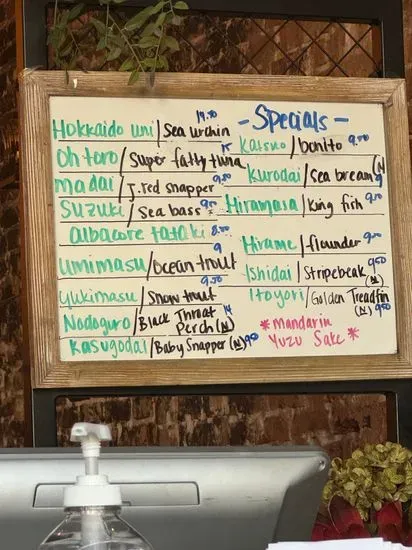 - Specials -
19.50
Hokkaido uni / Sea urchin
15
Oh toro / Super fatty tuna
madai / J.red snapper 9.50
Suzuki / Sea bass 9.50
albacore tataki 8.00
9
Umimasu / ocean trout
9.50
Yukimasu / Snow trut
Nodoguro / Black Throat 14
Perch (N)
Kasugodai / Baby Snapper (N) 9.50
Katsuo / bonito 9.00
Kurodai / Sea bream (N)
9
Hiramasa / King fish 9.50
Hirame / flounder 9.00
Ishidai / Stripebeak 9.50
(N)
Itoyori / Golden Treadfin
(N) 9.50
*Mandarin
Yuzu Sake*